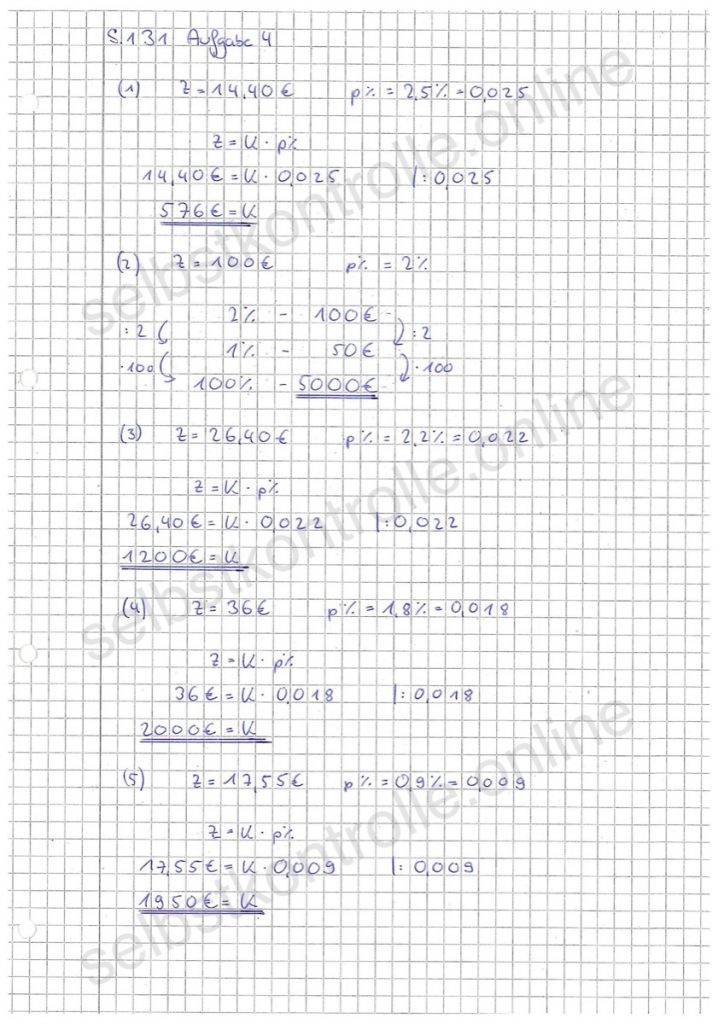 S.131 Aufgabe 4
(1) Z = 14,40€ p% = 2,5% = 0,025
Z = K · p%
14,40€ = K · 0,025 |: 0,025
576€ = K
(2) Z = 100€ p% = 2%
2% - 100€
: 2 : 2
1% - 50€
·100 ·100
100% - 5000€
(3) Z = 26,40€ p% = 2,2% = 0,022
Z = K · p%
26,40€ = K · 0,022 |: 0,022
1200€ = K
(4) Z = 36€ p% = 1,8% = 0,018
Z = K · p%
36€ = K · 0,018 |: 0,018
2000€ = K
(5) Z = 17,55€ p% = 0,9% = 0,009
Z = K · p%
17,55€ = K · 0,009 |: 0,009
1950€ = K
selbstkontrolle.online
selbstkontrolle.online
selbstkontrolle.online